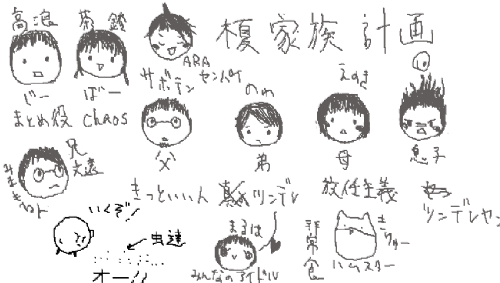 高浪 茶鈴
榎家族計画
ARA
サボテン センパイ
のわ
えのき
じー ばー
まとめ役 CHAOS
父 弟 母 息子
兄
きっといい人
ツンデレ
放任主義
ツンデレヤン
いくぞ!
虫達
オー!!
まるは
みんなのアイドル
非常食
ハムスター